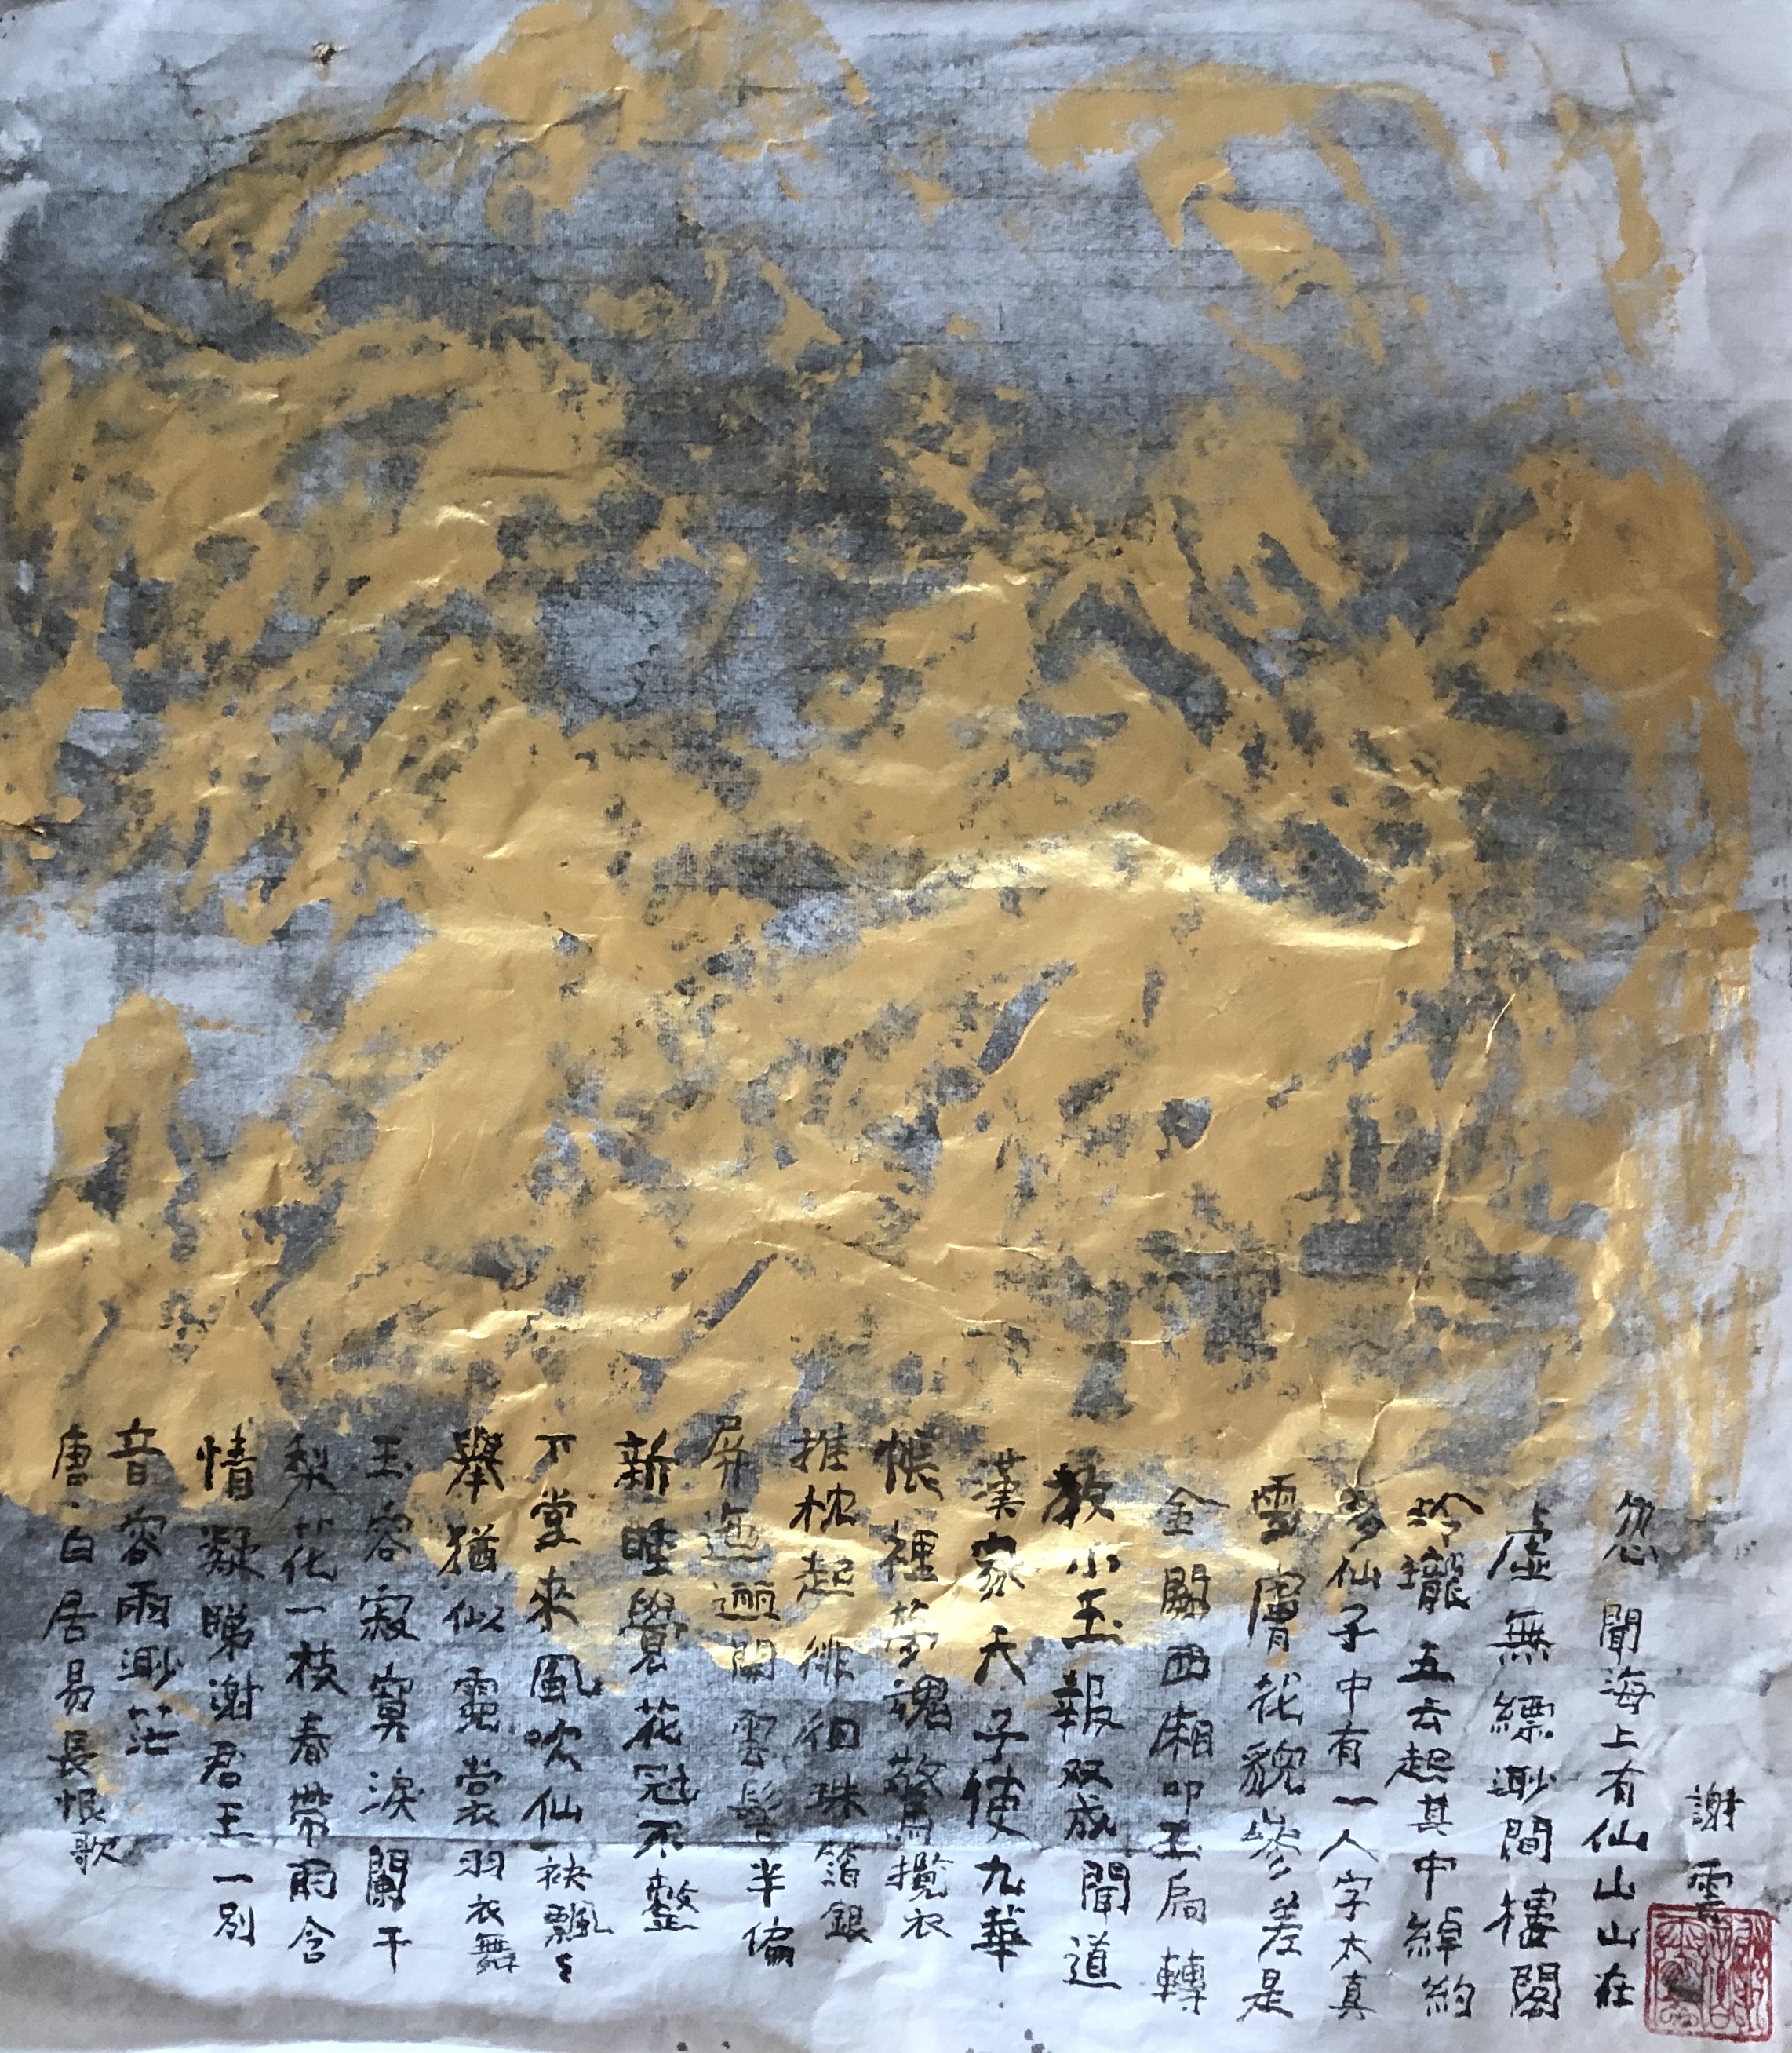 謝雲
忽聞海上有仙山山在
虛無縹渺間樓閣
玲瓏五云起其中綽約
多仙子中有一人字太真
雪膚花貌參差是
金闕西廂叩玉扃轉
教小玉報双成聞道
漢家天子使九華
帳裡夢魂驚攬衣
推枕起徘徊珠箔銀
屏迤邐開雲鬢半偏
新睡覺花冠不整
下堂來風吹仙袂飄〻
舉猶似霓裳羽衣舞
玉容寂寞淚闌干
梨花一枝春帶雨含
情凝睇謝君王一別
音容兩渺茫
唐·白居易長恨歌